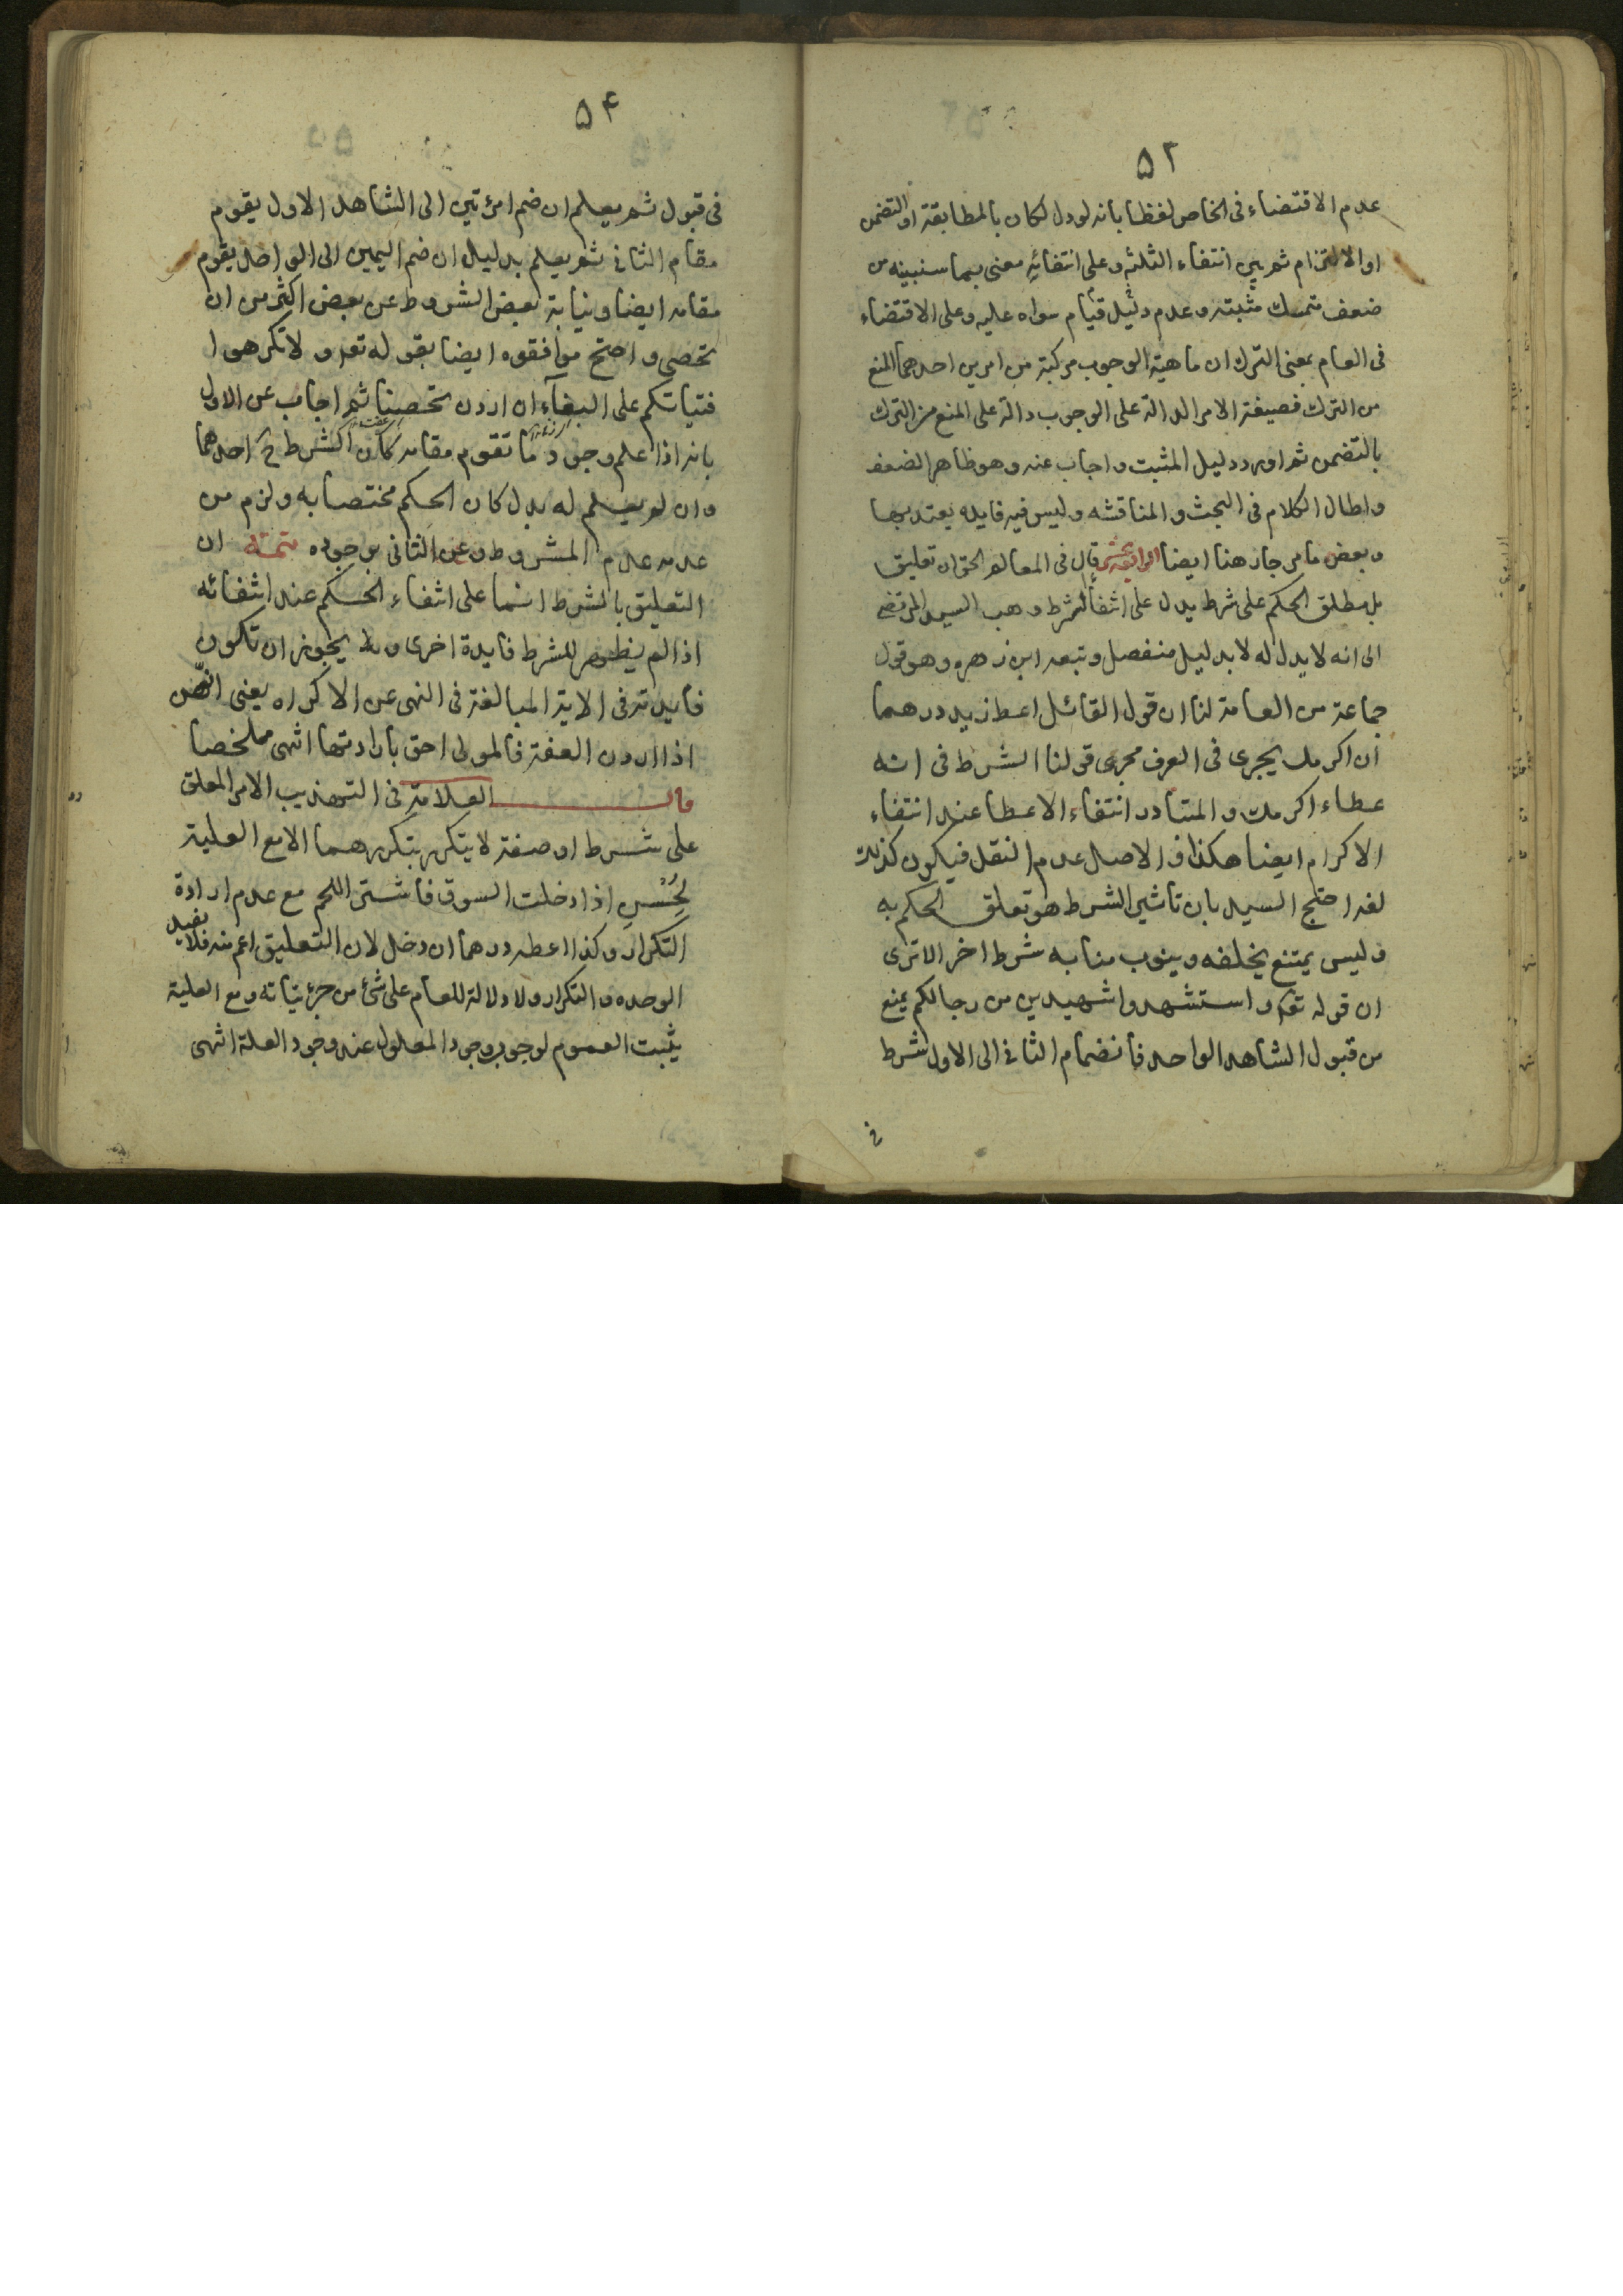 ۵۲
عدم الاقتضاء فى الخاص لفظا بانه لو دل لكان بالمطابقة او التضمن
او الالتزام ثم بين انتفاء الثلثة و على انتفائه معنى بما سنبينه من
ضعف متمسك مثبته و عدم دليل قيام سواه عليه و على الاقتضاء
فى العام بمعنى الترك ان ماهية الوجوب مركبة من امرين احدهما المنع
من الترك فصيغة الامر الدالة على الوجوب دالة على المنع من الترك
بالتضمن ثم اورد دليل المثبت و اجاب عنه و هو ظاهر الضعف
و اطال الكلام فى البحث و المناقشه و ليس فيه فايده يعتد بها
و بعض ما مر جاز هنا ايضا الرابعة عشر قال فى المعالم الحق ان تعليق
بل مطلق الحكم على شرط يدل على انتفاء الشرط و هب السيد المرتضى
الى انه لا يدل له لا بدليل منفصل و تبعه ابن زهره و هو قول
جماعة من العامة لنا ان قول القائل اعط زيد درهما
ان اكرمك يجرى فى العرف مجرى قولنا الشرط فى
عطاء اكرمك و المتبادر انتفاء الاعطا عند انتفاء
الاكرام ايضا هكذا و الاصل عدم النقل فيكون كذلك
لغه احتج السيد بان تاثير الشرط هو تعلق الحكم به
و ليس يمتنع يخلفه و ينوب منابه شرط اخر الا ترى
ان قوله تعه و استشهدوا شهيدين من رجالكم يمنع
من قبول الشاهد الواحد فانضمام الثانى الى الاول شرط
فى
۵۴
فى قبول ثم يعلم ان ضم امرئتين الى الشاهد الاول يقوم
مقام الثانى ثم يعلم بدليل ان ضم اليمين الى الواحد يقوم
مقامه ايضا و نيابة بعض الشروط عن بعض اكثر من ان
تحصى و احتج موافقوه ايضا بقوله تعه و لا تكرهوا
فتياتكم على البغآء ان اردن تحصينا ثم اجاب عن الاول
بانه اذا علم وجود ما تقوم مقامه كان الشرط ح احدهما
و ان لم يعلم له بدل كان الحكم مختصا به و لزم من
عدمه عدم المشروط و عن الثانى بوجوده تتمته ان
التعليق بالشرط انما على انتفاء الحكم عند انتفائه
اذا لم يظهر للشرط فايدة اخرى و يجوز ان تكون
فايدته فى الاية المبالغة فى النهى عن الاكراه يعنى انهن
اذا اردن العفة فالمولى احق بارادتها انتهى ملخصا
قال العلامة فى التهذيب الامر المعلق
على شرط او صفة لا يتكرر بتكررهما الا مع العلية
لحسن اذا دخلت السوق فاشتر اللحم مع عدم ارادة
التكرار و كذا اعطه درهما ان دخل لان التعليق اعم منه فلا يفيد
الوحده و التكرار و لا دلالة للعام على شئ من جزئياته و مع العلية
يثبت العموم لوجوب وجود المعلول عند وجود العلة انتهى